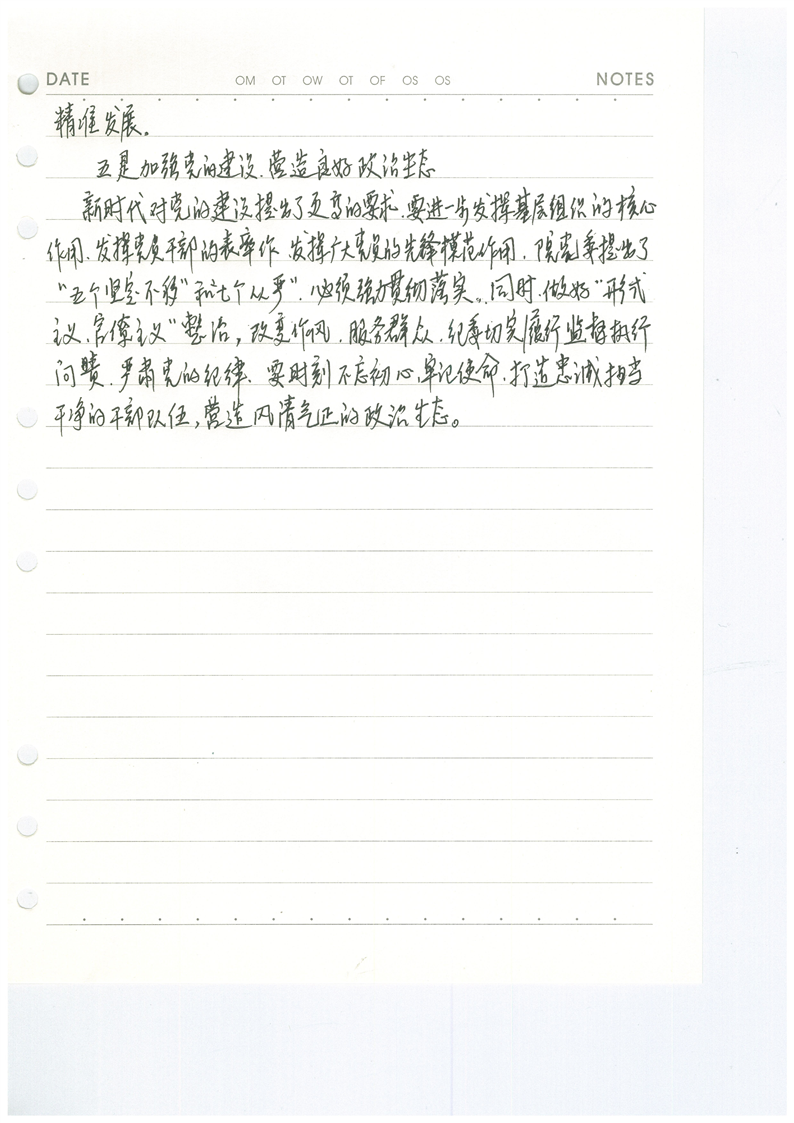 DATE OM OT OW OT OF OS OS NOTES
精准发展。
五是加强党的建设、营造良好政治生态
新时代对党的建设提出了更高的要求、要进一步发挥基层组织的核心
作用、发挥党员干部的表率作、发挥广大党员的先锋模范作用、院党委提出了
“五个坚定不移”和“七个从严”、必须强力贯彻落实。同时、做好“形式
主义、官僚主义”整治，改变作风、服务群众、纪委切实履行监督执行
问责、严肃党的纪律、要时刻不忘初心、牢记使命、打造忠诚担当
干净的干部队伍，营造风清气正的政治生态。